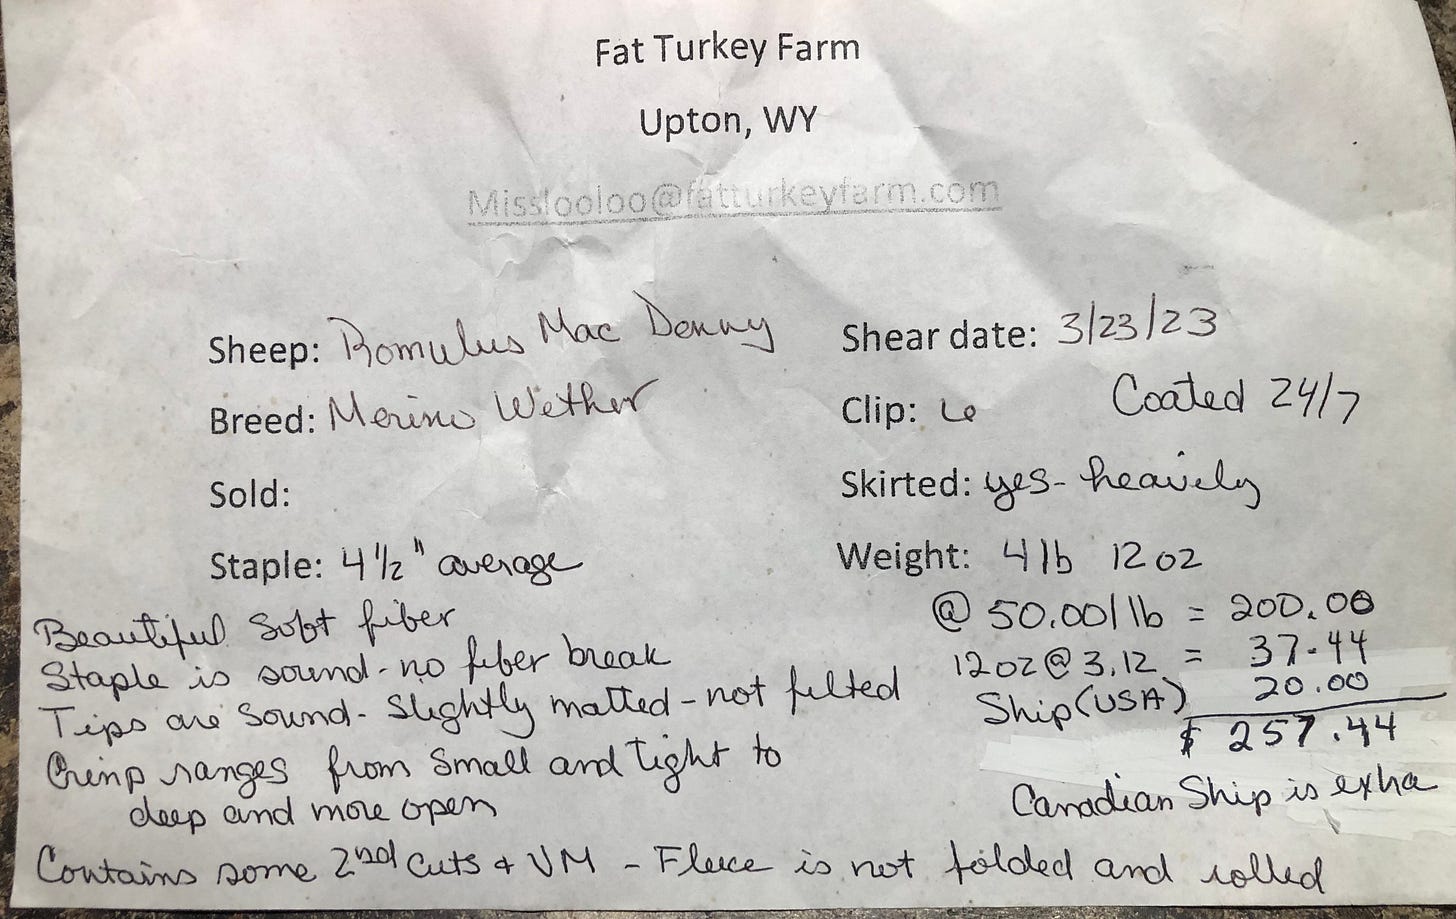 Fat Turkey Farm
Upton, WY
Misslooloo@fatturkeyfarm.com
Sheep: Romulus Mac Denny
Shear date: 3/23/23
Breed: Merino Wether
Clip: 6
Coated 24/7
Sold:
Skirted: yes - heavily
Staple: 4 1/2" average
Weight: 4 lb 12 oz
@ 50.00/lb = 200.00
12 oz @ 3.12 = 37.44
Ship (USA) 20.00
$ 257.44
Canadian Ship is extra
Beautiful soft fiber
Staple is sound - no fiber break
Tips are sound - slightly matted - not felted
Crimp ranges from small and tight to
deep and more open
Contains some 2nd cuts + VM - Fleece is not folded and rolled